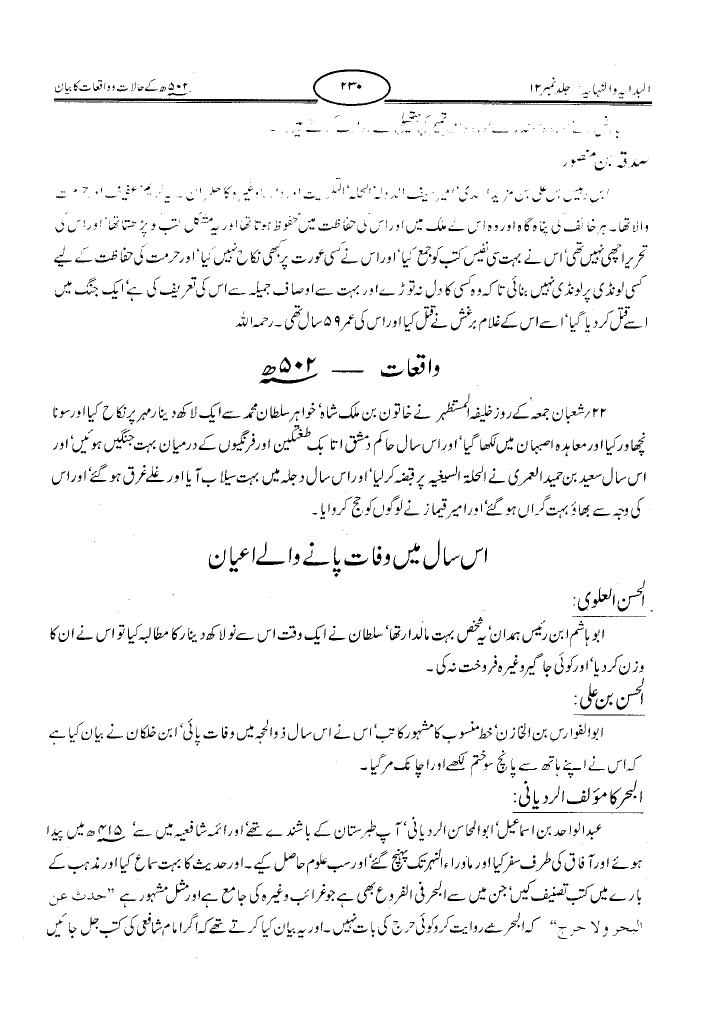 البدایہ والنہایہ: جلد نمبر ۱۲
۲۳۰
۵۰۲ھ کے حالات و واقعات کا بیان
صدقہ بن منصور
ابن دبیس بن علی بن مزید الاسدی، امیر سیف الدولہ، الحلہ، التکریت اور واسط وغیرہ کا حکمران۔ یہ کریم، عفیف اور حرمت
والا تھا۔ ہر خائف کی پناہ گاہ اور وہ اس کے ملک میں اور اس کی حفاظت میں محفوظ ہوتا تھا اور یہ مشکل کتب کو پڑھتا تھا، اور اس کی
تحریر اچھی نہیں تھی، اس نے بہت سی نفیس کتب کو جمع کیا، اور اس نے کسی عورت پر کبھی نکاح نہیں کیا، اور حرمت کی حفاظت کے لیے
کسی لونڈی پر لونڈی نہیں بنائی تاکہ وہ کسی کا دل نہ توڑے اور بہت سے اوصاف جمیلہ سے اس کی تعریف کی ہے، ایک جنگ میں
اسے قتل کر دیا گیا، اسے اس کے غلام برغش نے قتل کیا اور اس کی عمر ۵۹ سال تھی۔ رحمہ اللہ
واقعات — ۵۰۲ھ
۲۲/شعبان جمعہ کے روز خلیفہ المستظہر نے خاتون بن ملک شاہ، خواہر سلطان محمد سے ایک لاکھ دینار مہر پر نکاح کیا اور سونا
نچھاور کیا اور معاہدہ اصبہان میں لکھا گیا، اور اس سال حاکم دمشق اتابک طغتکین اور فرنگیوں کے درمیان بہت جنگیں ہوئیں، اور
اس سال سعید بن حمید العمری نے الحلۃ السیفیہ پر قبضہ کر لیا، اور اس سال دجلہ میں بہت سیلاب آیا اور غلے غرق ہو گئے، اور اس
کی وجہ سے بھاؤ بہت گراں ہو گئے، اور امیر قیماز نے لوگوں کو حج کروایا۔
اس سال میں وفات پانے والے اعیان
الحسن العلوی:
ابو ہاشم ابن رئیس ہمدان، یہ شخص بہت مالدار تھا، سلطان نے ایک وقت اس سے نو لاکھ دینار کا مطالبہ کیا تو اس نے ان کا
وزن کر دیا، اور کوئی جاگیر وغیرہ فروخت نہ کی۔
الحسن بن علی:
ابوالفوارس بن الخازن، خط منسوب کا مشہور کاتب، اس نے اس سال ذوالحجہ میں وفات پائی، ابن خلکان نے بیان کیا ہے
کہ اس نے اپنے ہاتھ سے پانچ سو ختم لکھے اور اچانک مر گیا۔
البحر کا مؤلف الردیانی:
عبدالواحد بن اسماعیل، ابوالمحاسن الردیانی، آپ طبرستان کے باشندے تھے، اور ائمہ شافعیہ میں سے، ۴۱۵ھ میں پیدا
ہوئے اور آفاق کی طرف سفر کیا اور ماوراء النہر تک پہنچ گئے، اور سب علوم حاصل کیے۔ اور حدیث کا بہت سماع کیا اور مذہب کے
بارے میں کتب تصنیف کیں، جن میں سے البحر فی الفروع بھی ہے جو غرائب وغیرہ کی جامع ہے اور مثل مشہور ہے "حدث عن
البحر ولا حرج" کہ البحر سے روایت کرو کوئی حرج کی بات نہیں۔ اور یہ بیان کیا کرتے تھے کہ اگر امام شافعی کی کتب جل جائیں